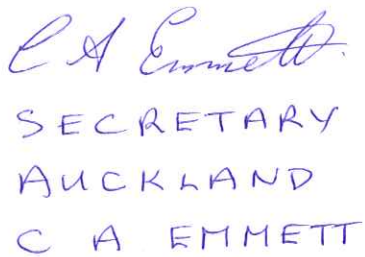 C A Emmett.
SECRETARY
AUCKLAND
C A EMMETT